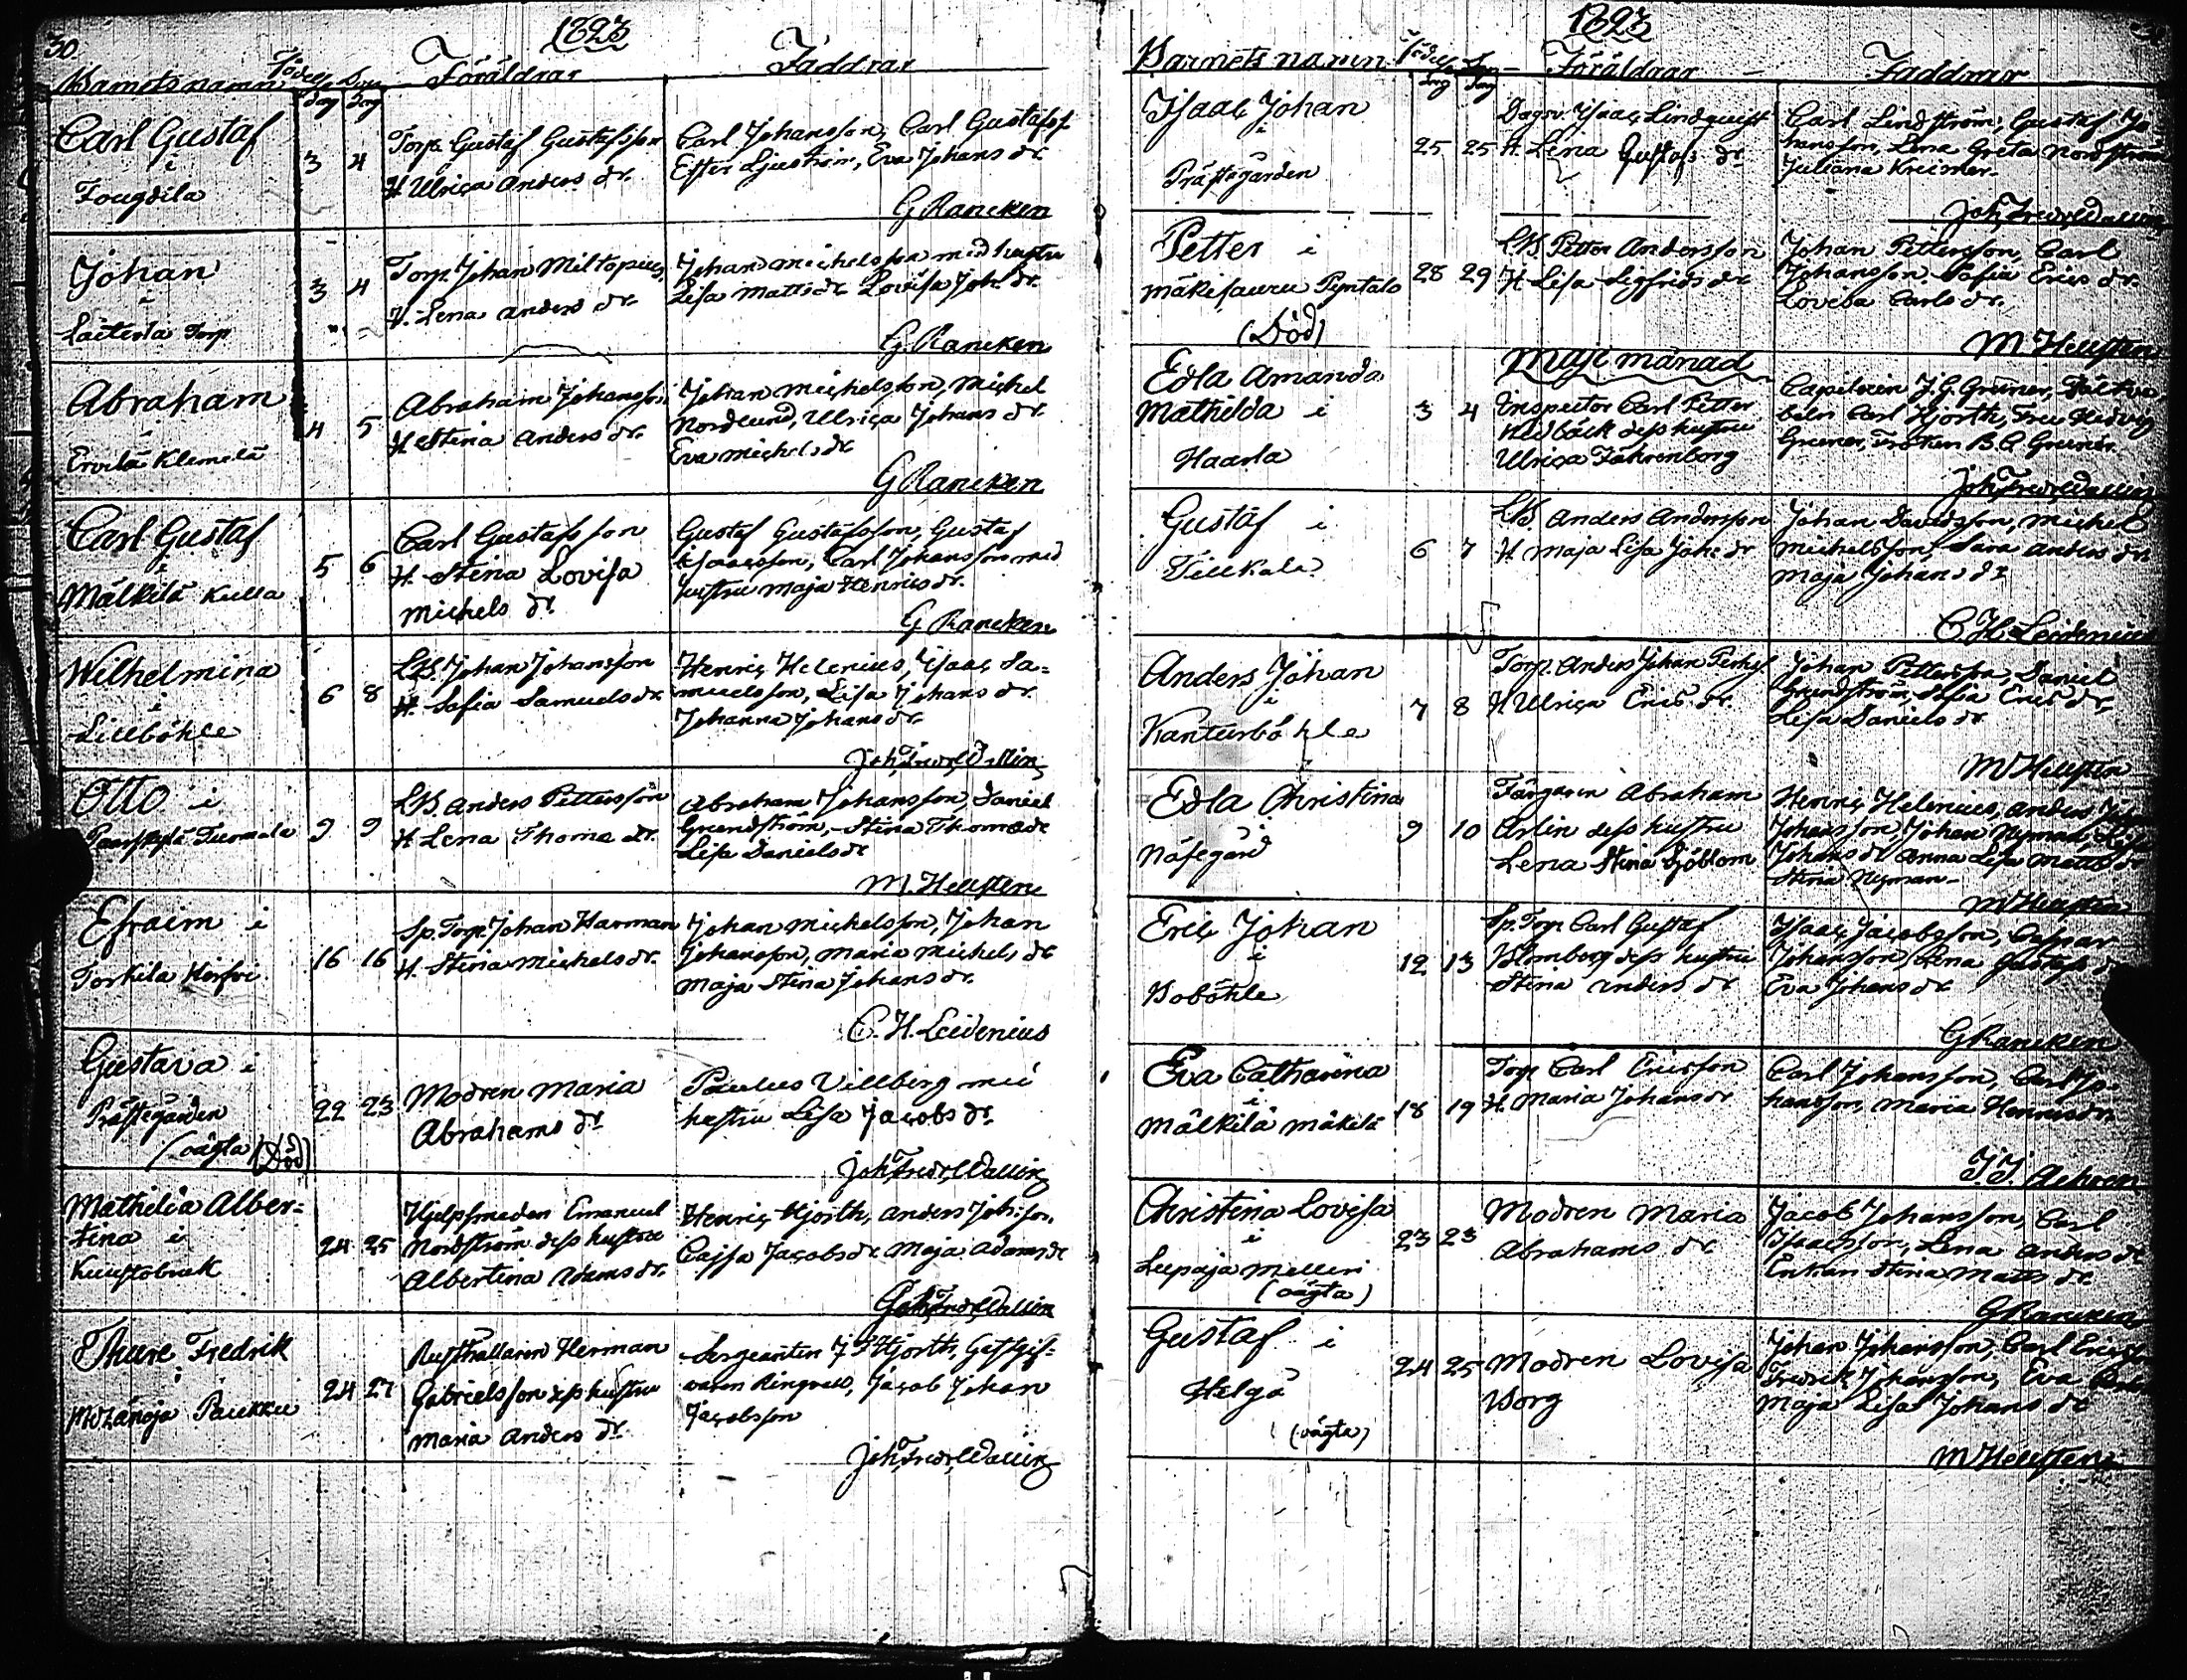 30.
1823
Barnets namn Födelse Dag Döp Dag Föräldrar Faddrar
Carl Gustaf
i
Fougdila
3 4
Torp. Gustaf Gustafsson
H. Ulrica Anders dr.
Carl Johansson, Carl Gustafss.
Ester Ljuström, Eva Johans dr.
G Rancken
Johan
i
Laeterla Torp
3 4
Torp. Johan Miltopæus
H. Lena Anders dr.
Johan Michelsson med hustru
Lisa Matts dr. Lovisa Joh. dr.
G. Rancken
Abraham
i
Ervelä Klemelä
4 5
Abraham Johansson
H. Stina Anders dr.
Johan Michelsson, Michel
Nordlund, Ulrica Johans dr.
Eva Michels dr
G Rancken
Carl Gustaf
i
Mälkilä Kulla
5 6
Carl Gustafsson
H. Stina Lovisa
Michels dr.
Gustaf Gustafsson, Gustaf
Isaacsson, Carl Johansson med
hustru Maja Henrics dr.
G Rancken
Wilhelmina
i
Lillböhle
6 8
LB. Johan Johansson
H. Safia Samuels dr.
Henric Helenius, Isaac Sa=
muelsson, Lisa Johans dr.
Johanna Johans dr.
Joh. Fredr. Wallin
Otto i
9 9
LB Anders Pettersson
H Lena Thoma dr.
Abraham Johansson, Daniel
Grundström, Stina Thoma dr
Lisa Daniels dr
M. Hellsten
Efraim i
Torkila Hirfvi
16 16
Sp. Torp. Johan Harman
H. Stina Michels dr.
Johan Michelsson, Johan
Johansson, Maria Michels dr
Maja Stina Johans dr.
C. H. Leidenius
Gustava i
Prästegården
(oägta) (Död)
22 23
Modren Maria
Abrahams dr.
Paulus Villberg med
hustru Lisa Jacobs dr.
Joh. Fredr. Wallin
Mathilda Alber=
tina i
24 25
Hjelpsmeden Emanuel
Nordström dess hustru
Albertina Adams dr.
Henric Hjorth, Anders Joh:son,
Cajsa Jacobs dr. Maja Adams dr
Joh. Fredr. Wallin
Thure Fredrik
i
Paukku
24 27
Rusthållaren Herman
Gabrielsson dess hustru
Maria Anders dr.
Sergeanten J. Hjorth, Gästgif=
varen Ringvall, Jacob Johan
Jacobsson
Joh. Fredr. Wallin
1823
Barnets namn Födelse Dag Döp Dag Föräldrar Faddrar
Isaac Johan
i
Prästegården
25 25
Dagsv. Isaac Lindqvist
H. Lena Gustafs dr
Carl Lindström, Gustaf Jo=
hansson, Lena Greta Nordström
Juliana Kreimer.
Joh. Fredr. Wallin
Petter i
Mäkisauru Pyntalo
(Död)
28 29
LB. Petter Andersson
H Lisa Sigfrids dr
Johan Pettersson, Carl
Johansson, Safia Erics dr.
Lovisa Carls dr.
M Hellsten
Maji månad
Edla Amanda
Mathilda i
Haarla
3 4
Inspector Carl Petter
Hedbäck dess hustru
Ulrica Fahrenborg
Capitain J. G. Grüner,
Carl Hjorth, Fru Hedvig
Gruner, Fröken B. C. Gruner.
Joh. Fredr. Wallin
Gustaf i
Tillkala
6 7
LB. Anders Andersson
H Maja Lisa Johs dr
Johan Davidsson, Michel
Michelsson, Sara Anders dr
Maja Johans dr
C. H. Leidenius
Anders Johan
i
Kanturböhle
7 8
Torp. Anders Johan
H. Ulrica Erics dr.
Johan Pettersson, Daniel
Grundström, Stina Erics dr,
Lisa Daniels dr
M Hellsten
Edla Christina
i
Näsegård
9 10
Färgaren Abraham
Arlin dess hustru
Lena Stina Sjöblom
Henric Helenius, Anders
Johansson, Johan Nyman, Lisa
Johans dr Anna Lisa Matts dr
Stina Nyman
M Hellsten
Eric Johan
i
Boböhle
12 13
Sp. Torp Carl Gustaf
Blomberg dess hustru
Stina Anders dr
Isaac Jacobsson, Caspar
Johansson, Lena Gustafs dr
Eva Johans dr
G Rancken
Eva Catharina
i
Mälkilä Mäkilä
18 19
Torp Carl Ericsson
H. Maria Johans dr
Carl Johansson, Carl Jo=
hansson, Maria Henrics dr.
Christina Lovisa
i
Lupaja Melleri
(oägta)
23 23
Modren Maria
Abrahams dr.
Jacob Johansson, Carl
Isaacsson, Lena Anders dr
Enkan Stina Matts dr
G Rancken
Gustaf i
Helgå
(oägta)
24 25
Modren Lovisa
Borg
Johan Johansson, Carl Ericsson
Fredrik Johansson, Eva
Maja Lisa Johans dr
M Hellsten